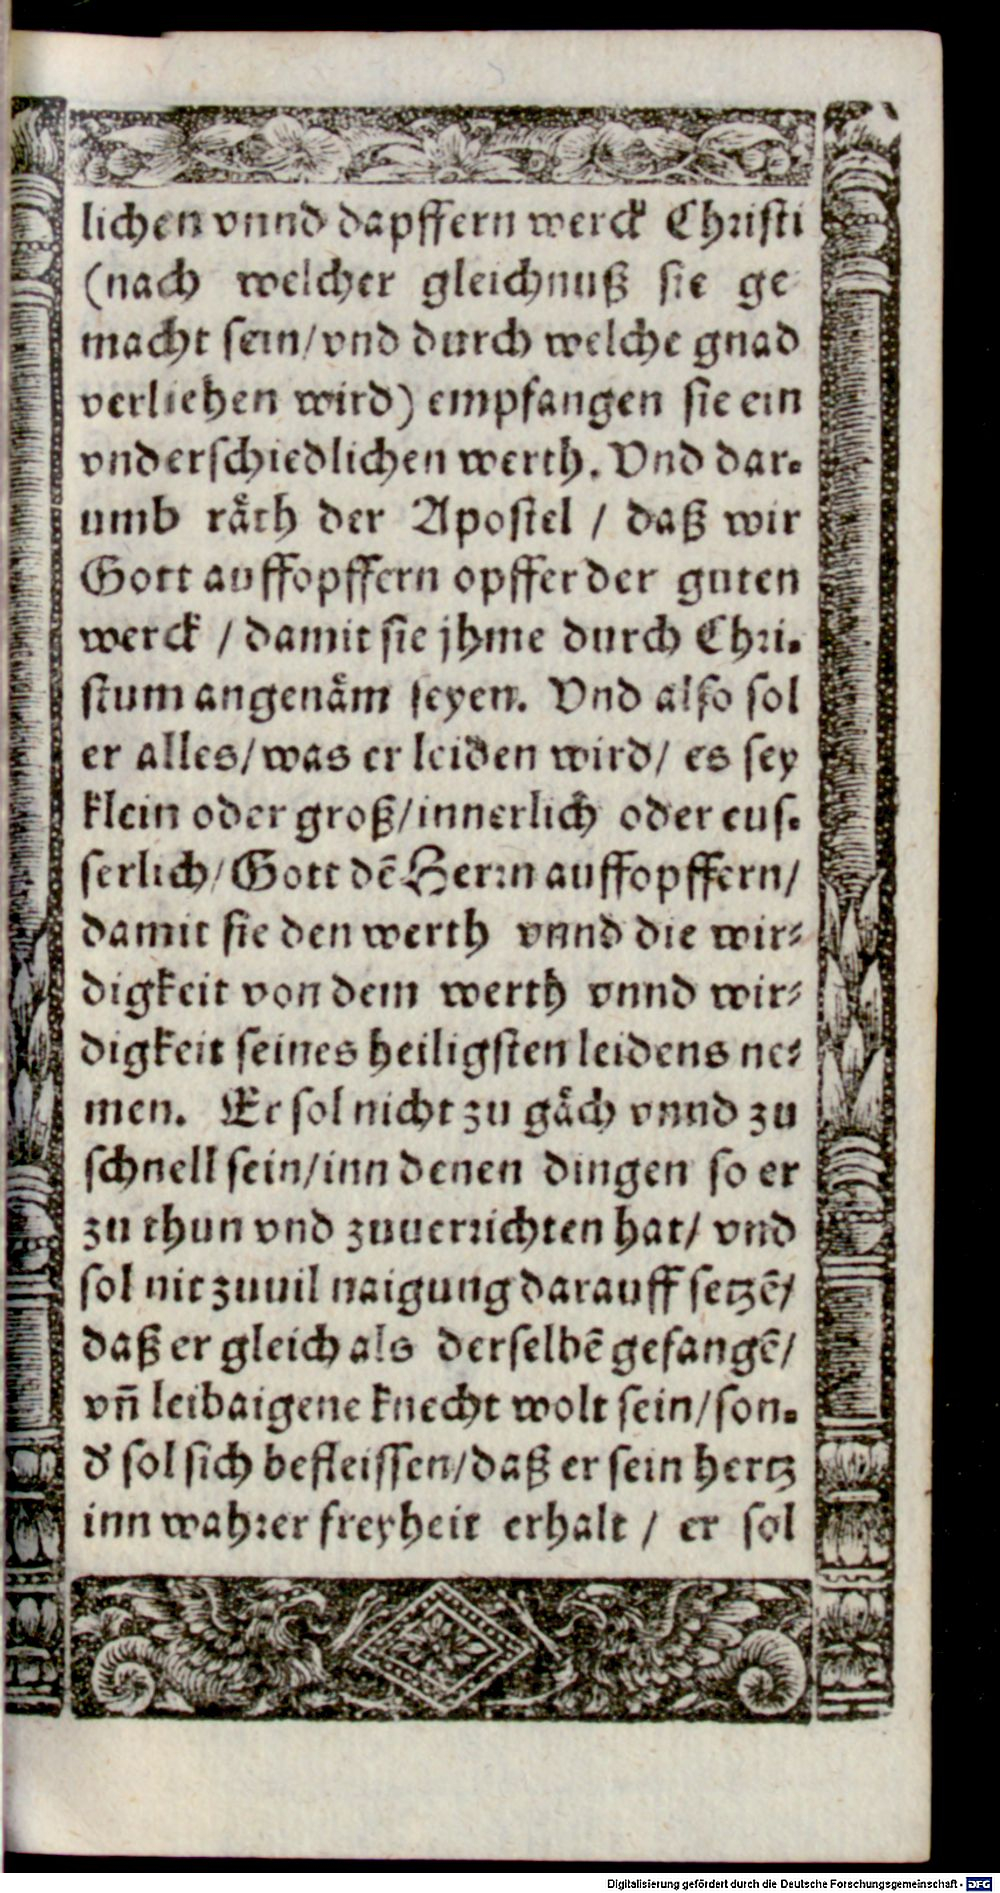 lichen vnnd dapffern werck Christi
(nach welcher gleichnuß sie ge
macht sein/vnd durch welche gnad
verliehen wird) empfangen sie ein
vnderschiedlichen werth. Vnd dar-
umb raͤth der Apostel / daß wir
Gott auffopffern opffer der guten
werck / damit sie jhme durch Chri-
stum angenaͤm seyen. Vnd also sol
er alles/was er leiden wird/ es sey
klein oder groß/innerlich oder eus-
serlich/Gott dẽ Herrn auffopffern/
damit sie den werth vnnd die wir-
digkeit von dem werth vnnd wir-
digkeit seines heiligsten leidens ne-
men. Er sol nicht zu gaͤch vnnd zu
schnell sein/inn denen dingen so er
zu thun vnd zuuerrichten hat/ vnd
sol nit zuuil naigung darauff setzẽ/
daß er gleich als derselbẽ gefangẽ/
vñ leibaigene knecht wolt sein/son-
d' sol sich befleissen/daß er sein hertz
inn wahrer freyheit erhalt / er sol
Digitalisierung gefördert durch die Deutsche Forschungsgemeinschaft - DFG